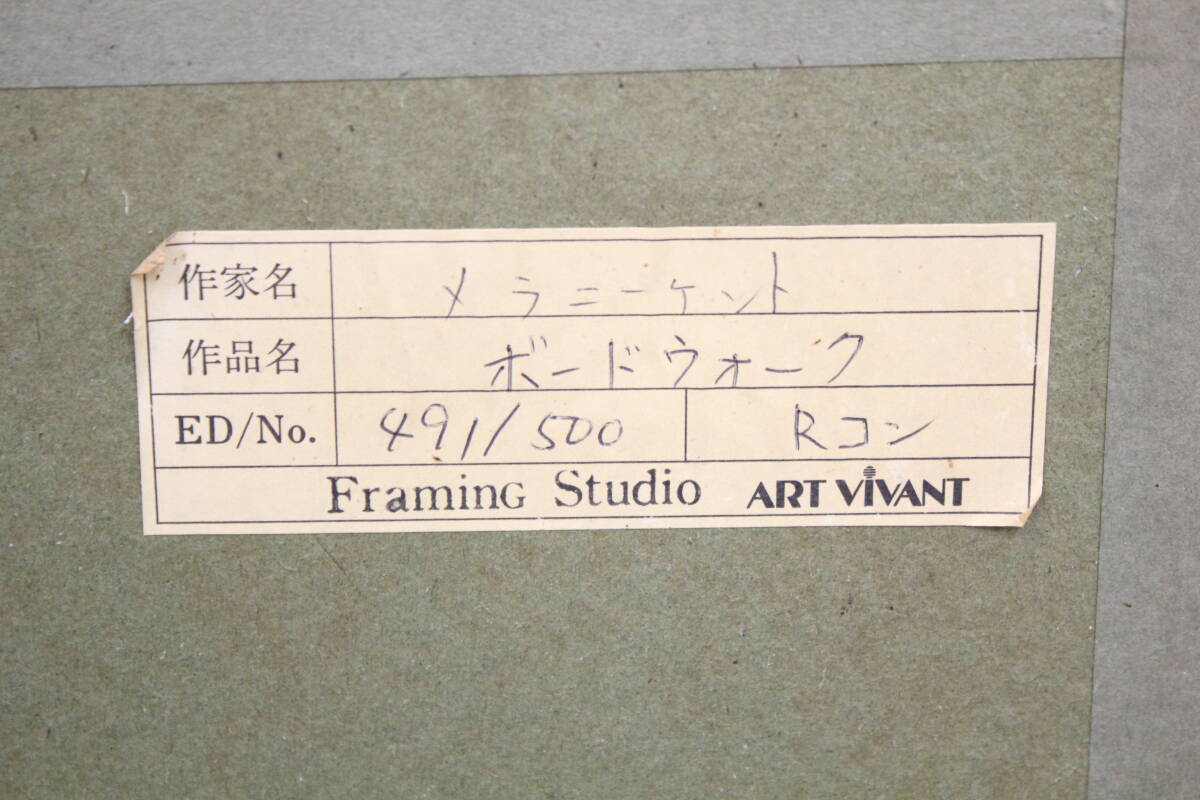 作家名 メラニーケント
作品名 ボードウォーク
ED/No. 491/500 Rコン
Framing Studio ART VIVANT